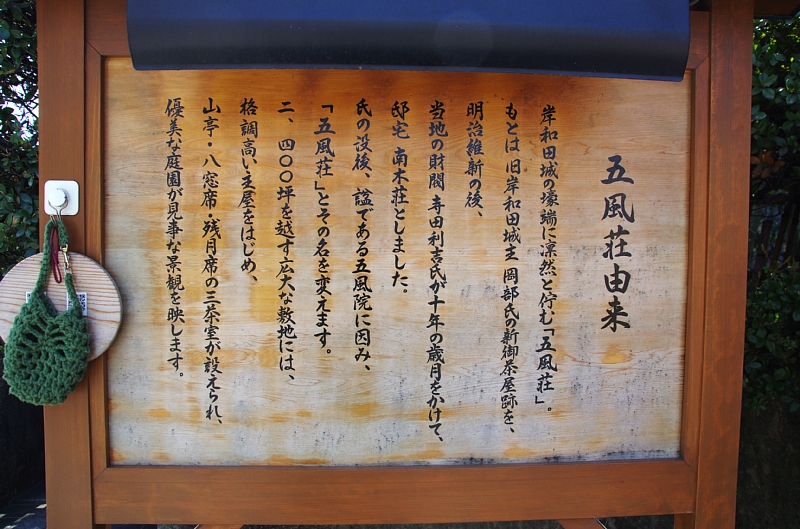 五風荘由来
岸和田城の壕端に凛然と佇む「五風荘」。
もとは旧岸和田城主 岡部氏の新御茶屋跡を、
明治維新の後、
当地の財閥 寺田利吉氏が十年の歳月をかけて、
邸宅 南木荘としました。
氏の没後、諡である五風院に因み、
「五風荘」とその名を変えます。
二、四〇〇坪を越す広大な敷地には、
格調高い主屋をはじめ、
山亭・八窓席・残月席の三茶室が設えられ、
優美な庭園が見事な景観を映します。